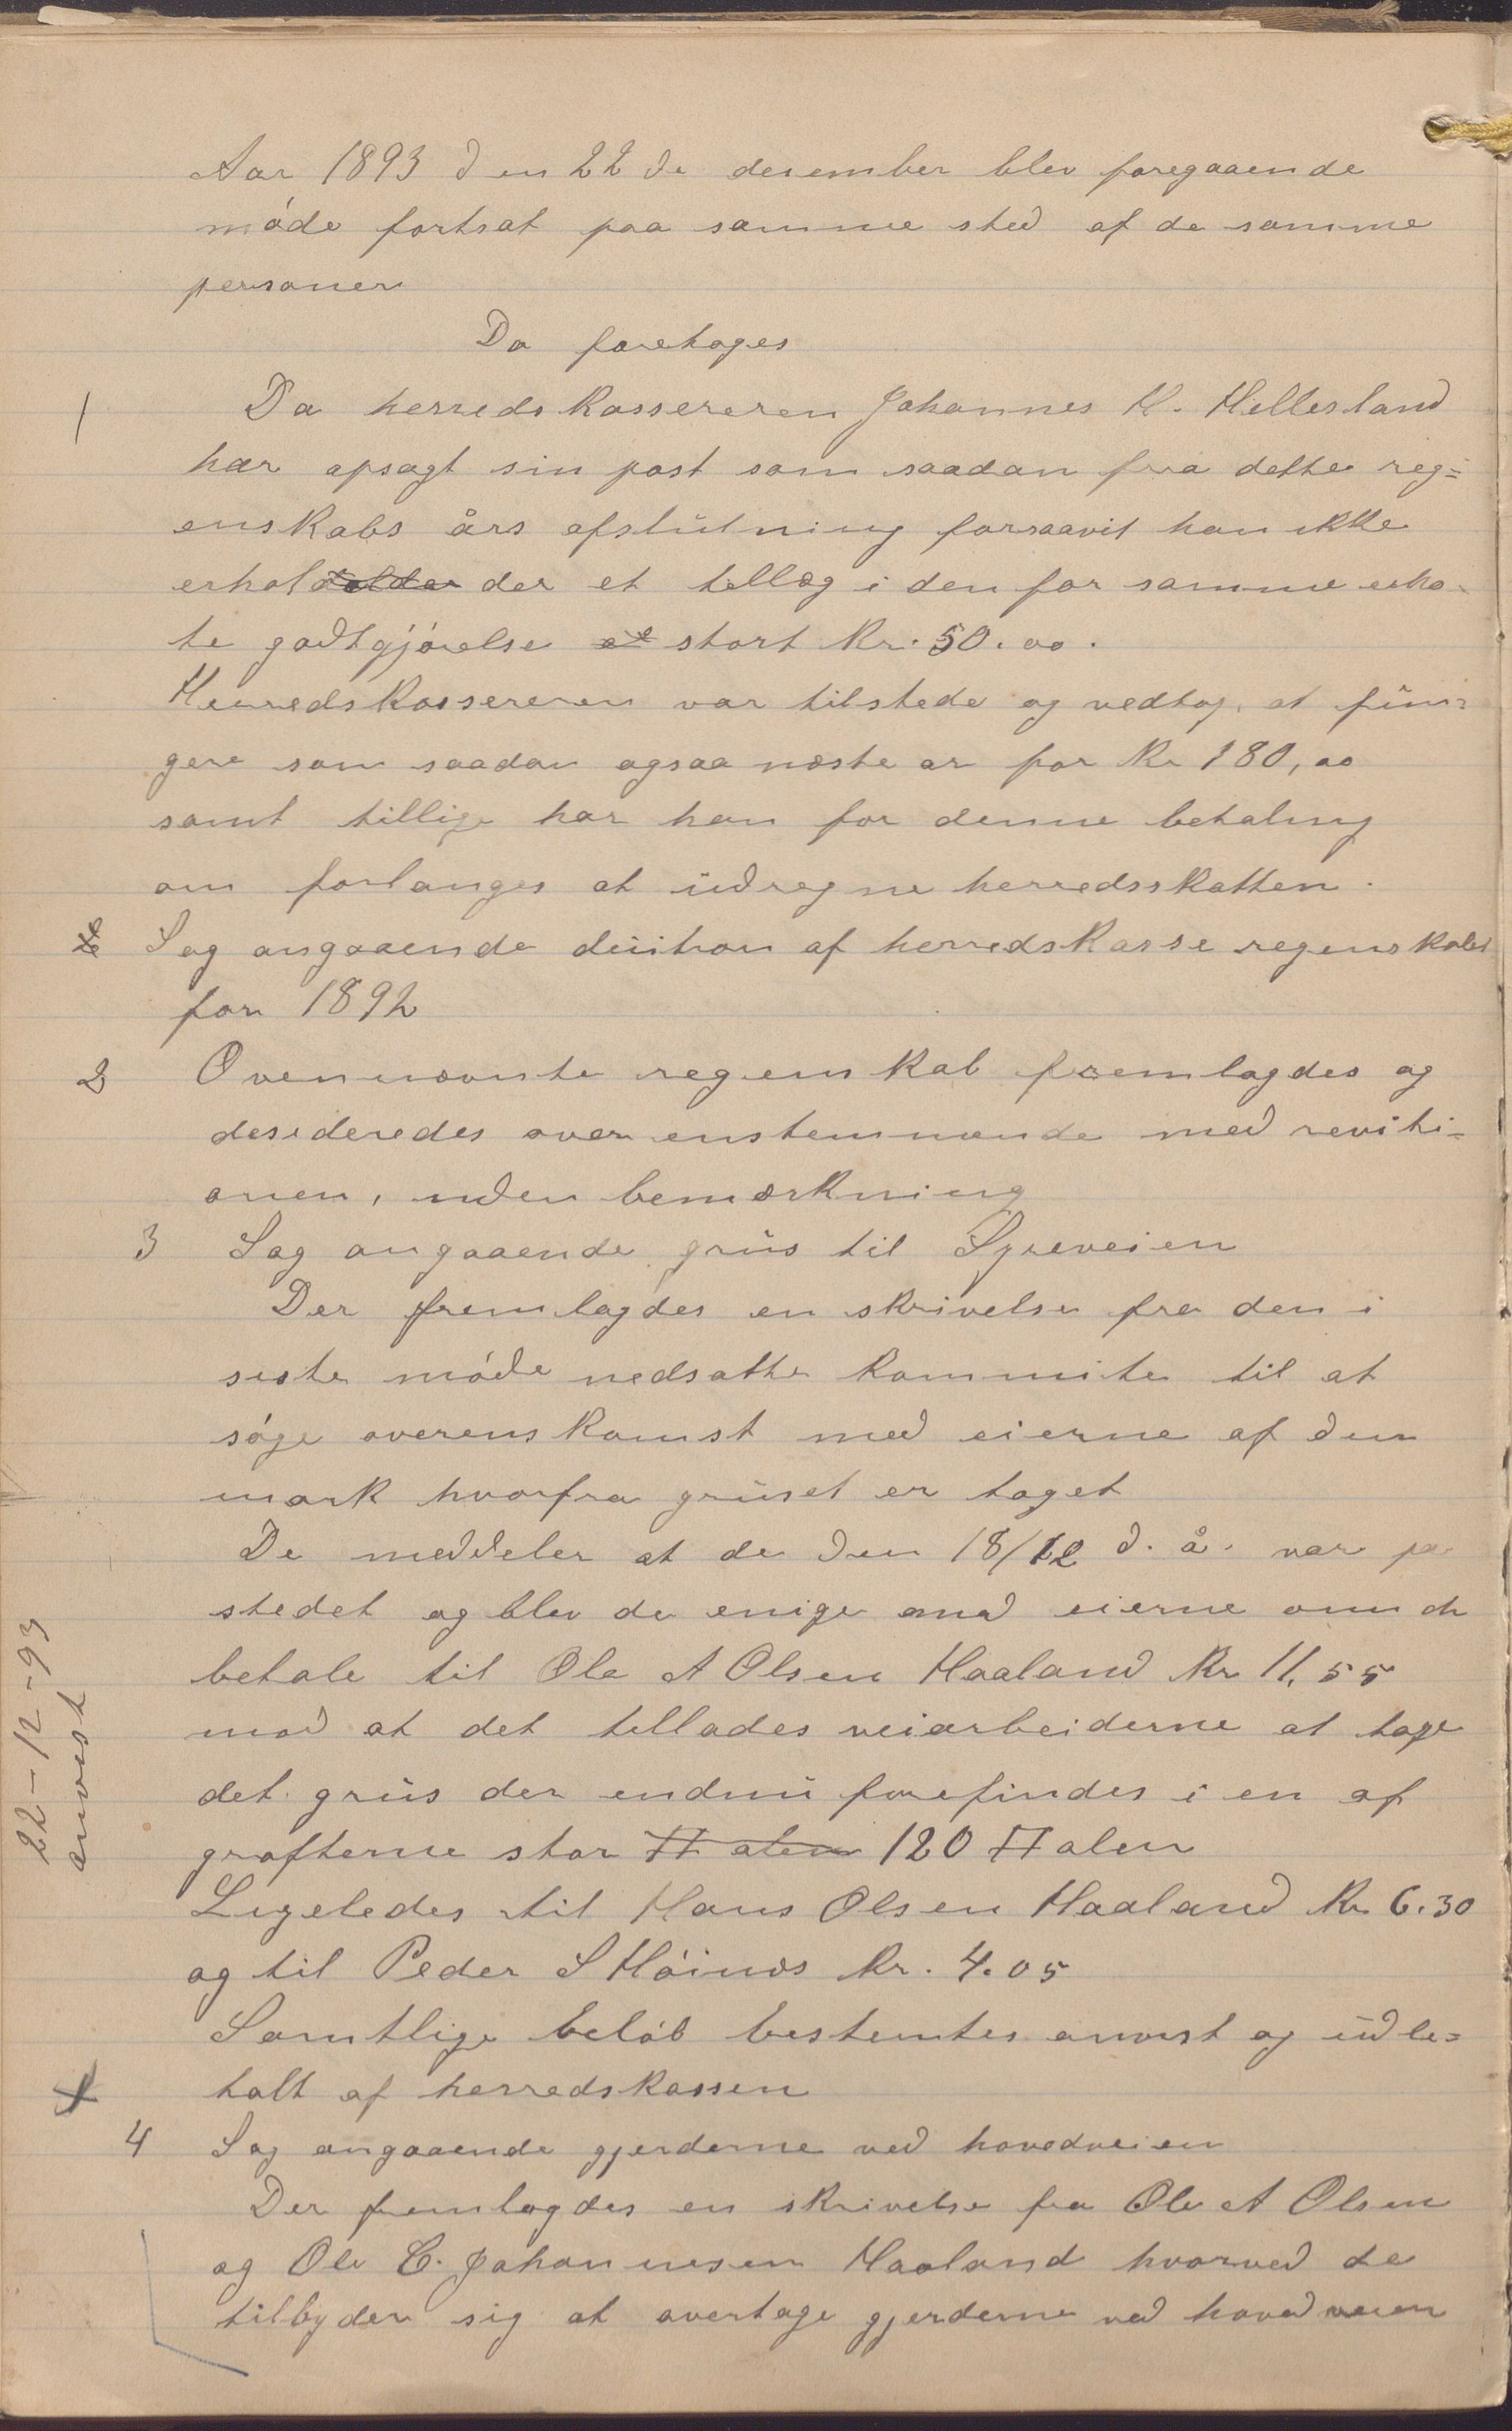 Aar 1893 den 22de desember blev foregaaende
møde fortsat paa samme sted af de samme
personer
Da foretoges
1 Da herredskassereren Johannes H. Hellesland
har opsagt sin post som saadan fra dette reg=
enskabs års afslutning forsaavit han ikke
erholder der et tillæg i den for samme erho-
te godtgjørelse et stort Kr. 50.00.
Herredskassereren var tilstede og vedtog, at fun=
gere som saadan ogsaa næste ar for Kr 180,00
samt tillige har han for denne betaling
om forlanges at udregne herredsskatten.
2 Sag angaaende desition af herredskasse regenskabet
for 1892
2 Ovennævnte regenskab fremlagdes og
desideredes overenstemmende med reviti=
onen, uden bemærkning
3 Sag angaaende grus til Syreveien
Der fremlagdes en skrivelse fra den i
siste møde nedsatte kommite til at
søge overenskomst med eierne af den
mark hvorfra gruset er taget
De meddeler at de den 18/12 d. å. var pa
stedet og blev de enige med eierne om at
betale til Ole A Olsen Haaland Kr 11,55
mod at det tillades veiarbeiderne at tage
det grus der endnu forefindes i en af
grøfterne stor □ alen 120 □ alen
Ligeledes til Hans Olsen Haaland Kr. 6.30
og til Peder S Høinæs Kr. 4.05
Samtlige beløb bestemtes anvist og udbe=
talt af herredskassen
22-12-93
anvist
4 Sag angaaende gjerderne ved hovedveien
Der fremlagdes en skrivelse fra Ole A Olsen
og Ole C. Johannesen Haaland hvorved de
tilbyder sig at overtage gjerderne ved hovedveien